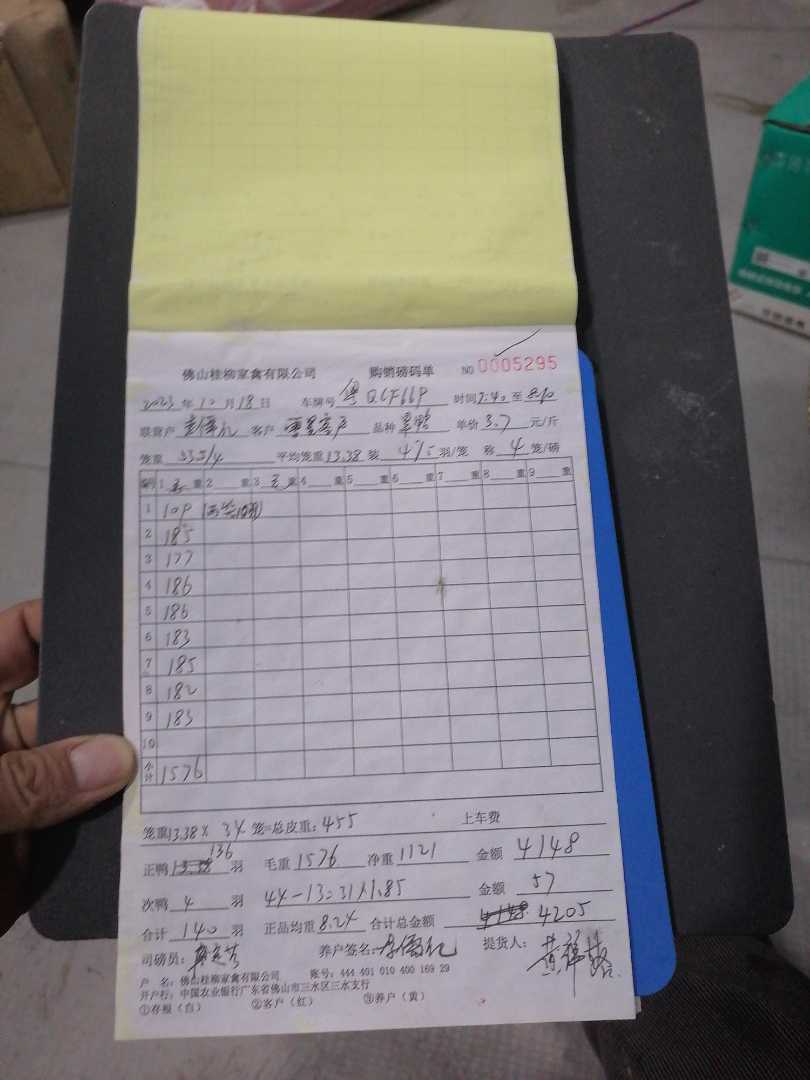 佛山桂柳家禽有限公司 购销磅码单 NO 0005295
2023年10月18日 车牌号 粤QCF66P 时间7:40至8:10
联营户 客户 品种 单价3.7元/斤
笼重 平均笼重13.38 装 4/5羽/笼 称 4 笼/磅
编号 1 重 2 重 3 重 4 重 5 重 6 重 7 重 8 重 9 重
1 109
2 185
3 177
4 186
5 186
6 183
7 185
8 182
9 183
10
小计 1576
笼重13.38× 34 笼=总皮重:455 上车费
正鸭 136 羽 毛重 1576 净重 1121 金额 4148
次鸭 4 羽 44-13=31×1.85 金额 57
合计 140 羽 正品均重 8.24 合计总金额 4205
司磅员: 养户签名: 提货人:
户 名:佛山桂柳家禽有限公司 账号:444 401 010 400 169 29
开户行:中国农业银行广东省佛山市三水区三水支行
①存根(白) ②客户(红) ③养户(黄)